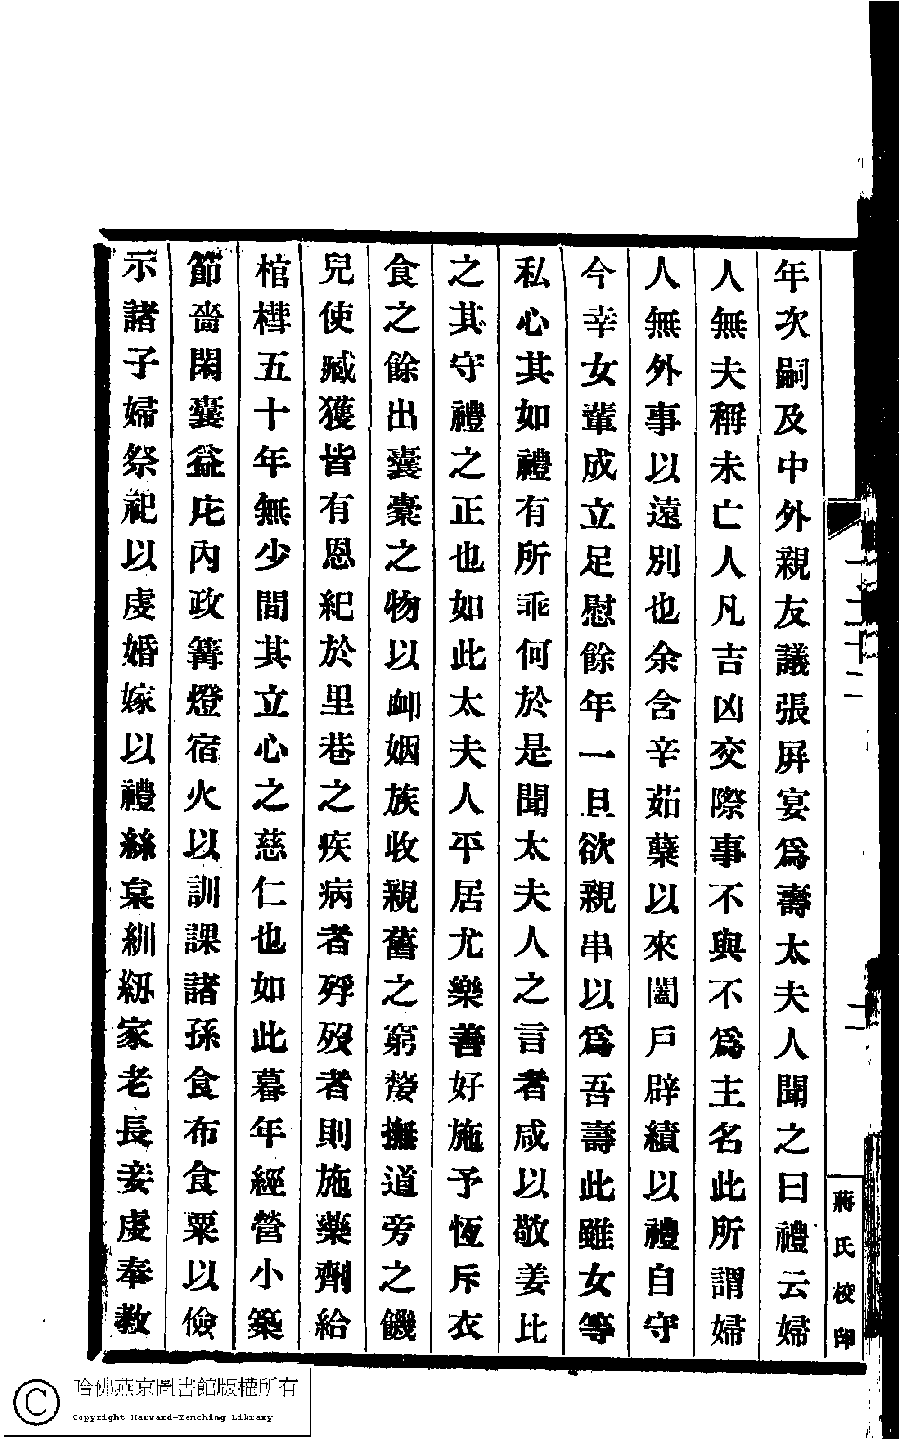 年次嗣及中外親友議張屛宴爲壽太夫人聞之曰禮云婦
人無夫稱未亡人凡吉凶交際事不與不爲主名此所謂婦
人無外事以遠別也余含辛茹蘖以來闔戶辟績以禮自守
今幸女輩成立足慰餘年一旦欲親串以爲吾壽此雖女等
私心其如禮有所乖何於是聞太夫人之言者咸以敬姜比
之其守禮之正也如此太夫人平居尤樂善好施予恆斥衣
食之餘出囊橐之物以卹姻族收親舊之窮嫠撫道旁之饑
兒使臧獲皆有恩紀於里巷之疾病者殍歿者則施藥劑給
棺槥五十年無少間其立心之慈仁也如此暮年經營小築
節嗇閑囊益庀內政篝燈宿火以訓課諸孫食布食粟以儉
示諸子婦祭祀以虔婚嫁以禮絲枲紃紉家老長妾虔奉教
二十二
二
蔣氏校印
哈佛燕京圖書館版權所有
Copyright Harvard-Yenching Library